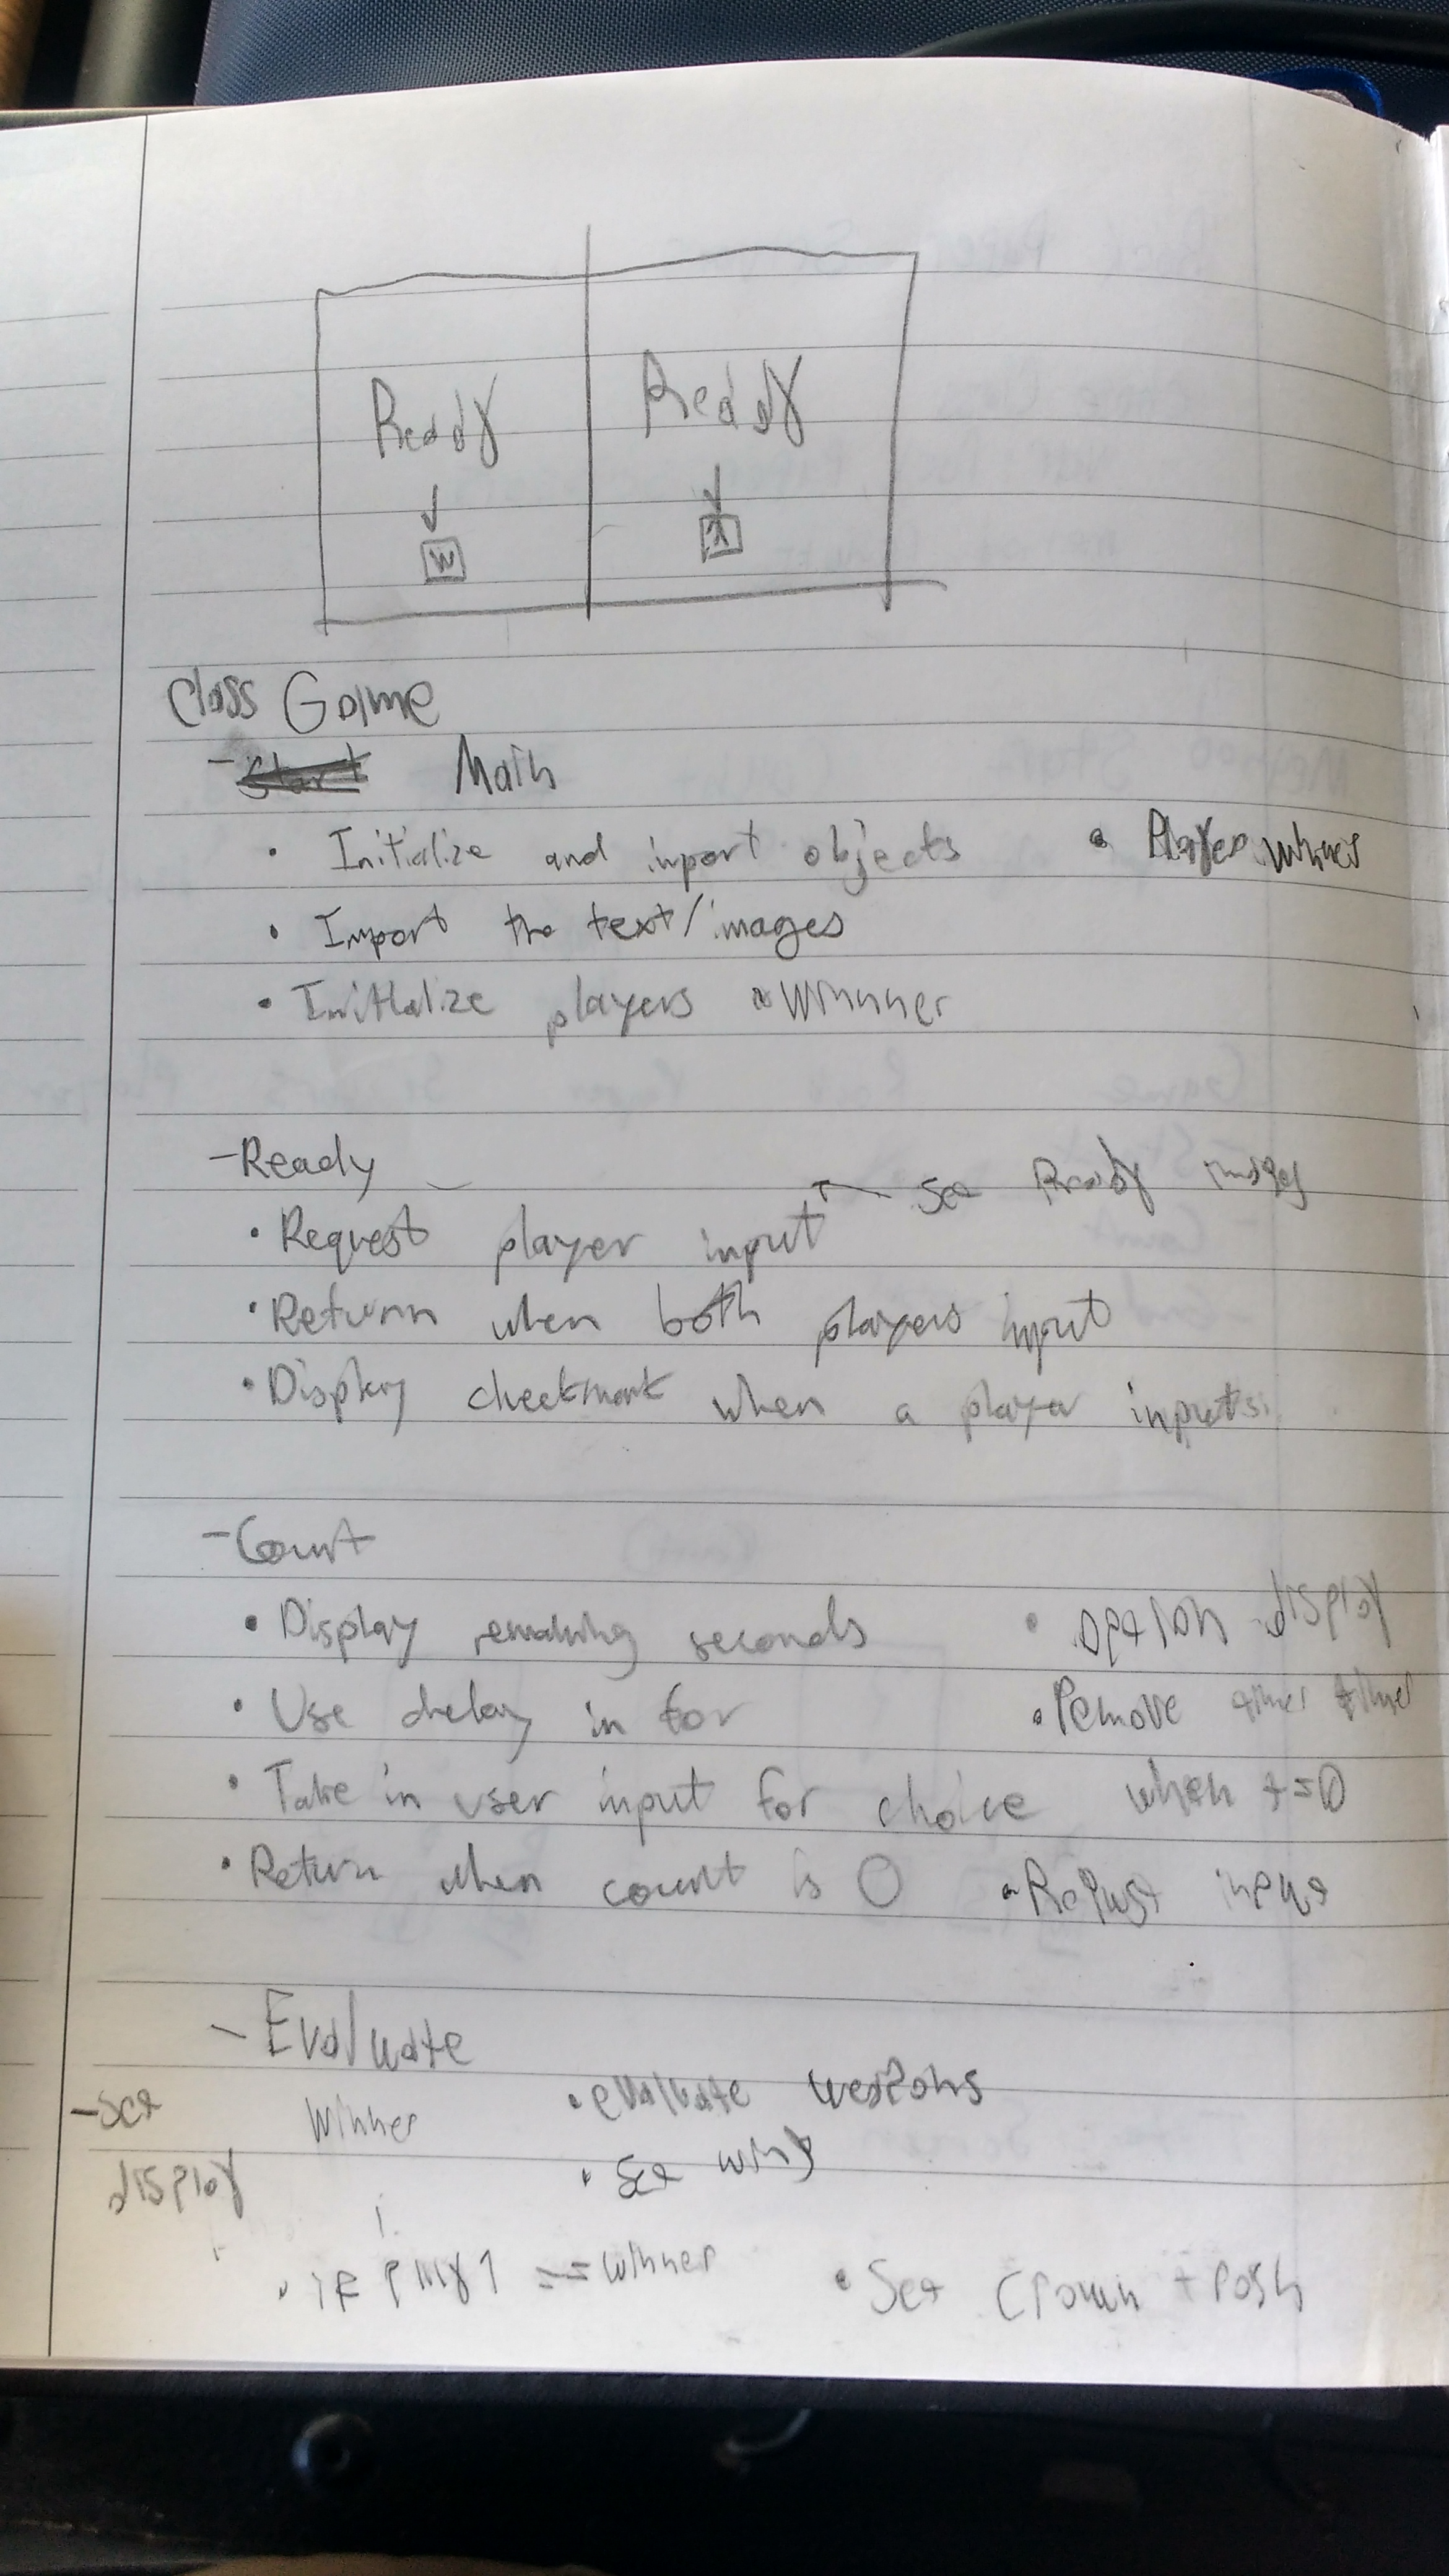 Ready Ready
W
Class Game
- Main
• Initialize and import objects • Player winner
• Import the text/images
• Initialize players • Winner
- Ready
Set Ready images
• Request player input
• Return when both players input
• Display checkmark when a player inputs
- Count
• Display remaining seconds • option display
• Use delay in for • Remove timer
• Take in user input for choice when t=0
• Return when count is 0 • Request input
- Evaluate
- Set Winner • evaluate weapons
display • Set
• if == winner • Set Crown + Posh